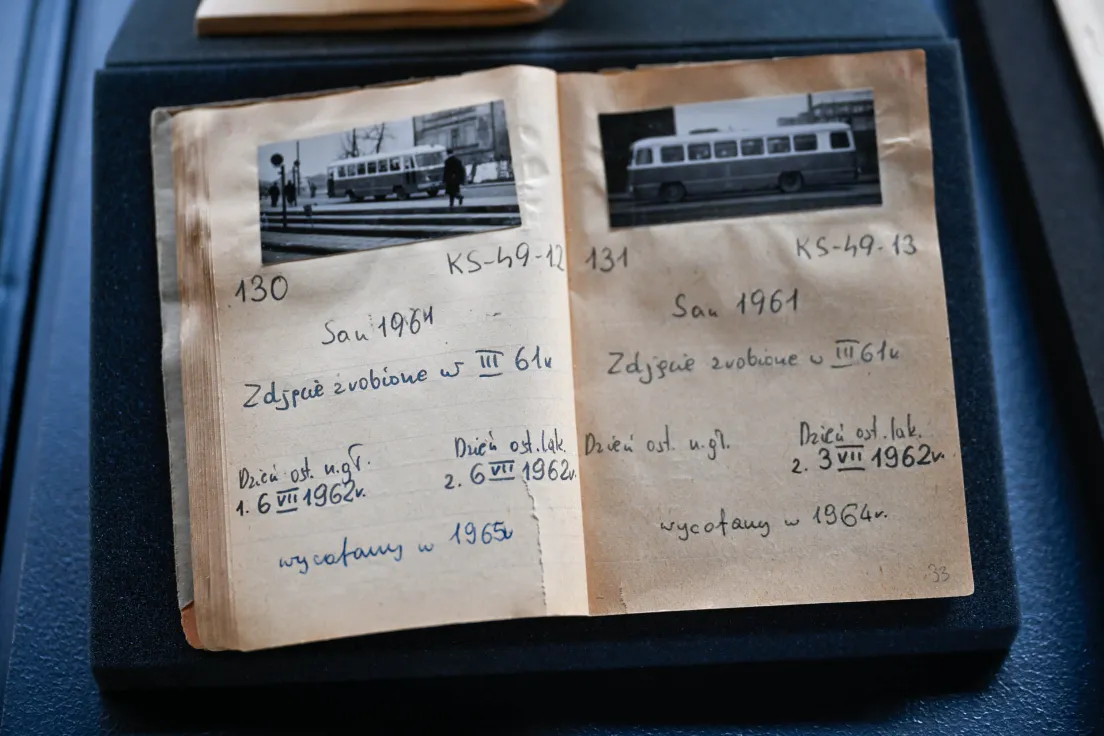 130 KS-49-12
San 1961
Zdjęcie zrobione w III 61r
Dzień ost. n.gł.
1. 6 VII 1962r.
Dzień ost. lak.
2. 6 VII 1962r.
wycofany w 1965r
131 KS-49-13
San 1961
Zdjęcie zrobione w III 61r
Dzień ost. n.gł.
Dzień ost. lak.
2. 3 VII 1962r.
wycofany w 1964r.
33